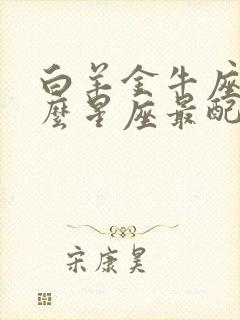 白羊金牛座
麽星座最配
宋康昊